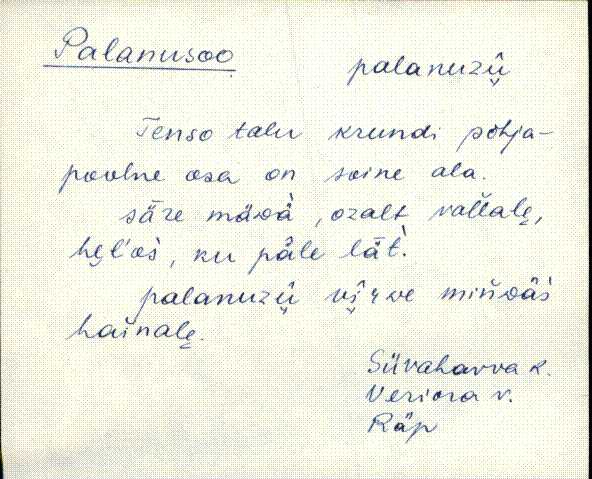 Palanusoo
palanuzū̬
Tenso talu krundi põhja-
poolne osa on soine ala.
säre mäwä̀, ozalt vallalȩ,
hȩl'oš, ku päle lät̀.
palanuzū̬ vi̬rwe mińwäš
hainalȩ.
Süvahavva k.
Veriora v.
Räp